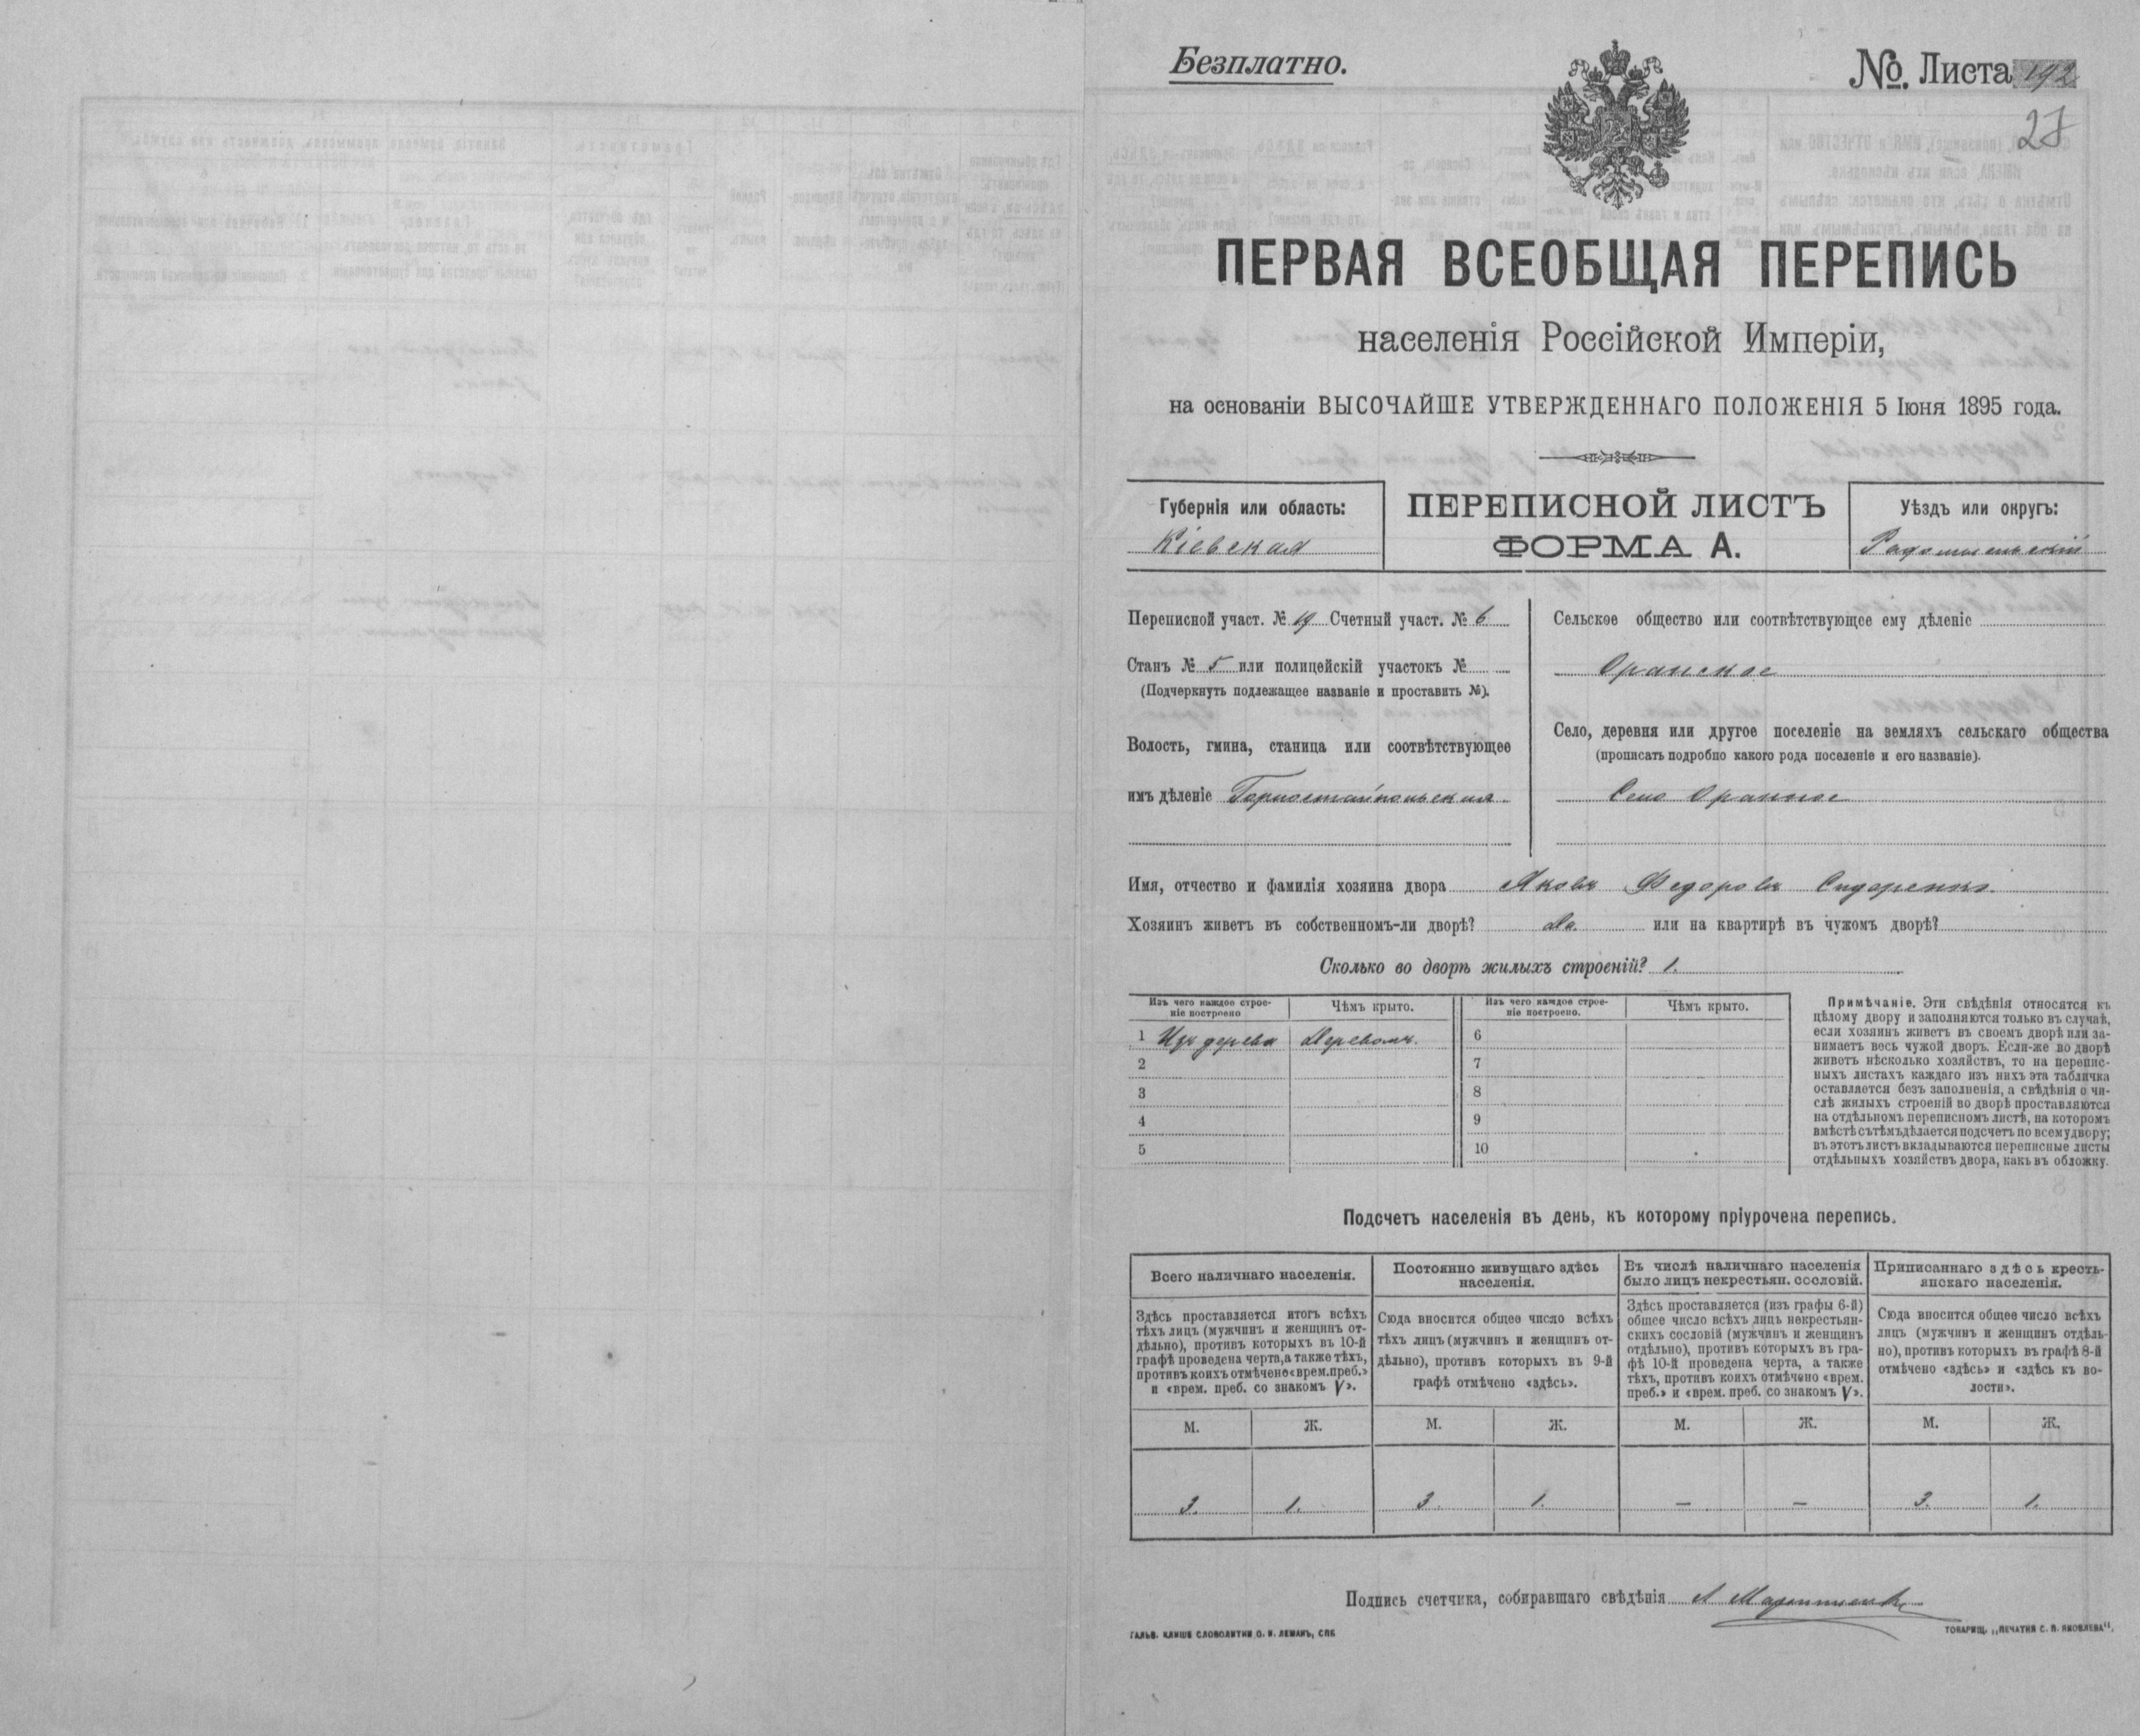 Безплатно.
№. Листа 192
27
ПЕРВАЯ ВСЕОБЩАЯ ПЕРЕПИСЬ
населенія Россійской Имперіи,
на основаніи ВЫСОЧАЙШЕ УТВЕРЖДЕННАГО ПОЛОЖЕНІЯ 5 Іюня 1895 года.
Губернія или область:
Кіевская
ПЕРЕПИСНОЙ ЛИСТЪ
ФОРМА А.
Уѣздъ или округъ:
Радомысльскій
Переписной участ. № 19 Счетный участ. № 6
Станъ № 5 или полицейскій участокъ №
(Подчеркнуть подлежащее названіе и проставить №).
Волость, гмина, станица или соотвѣтствующее
имъ дѣленіе Горностайпольская.
Сельское общество или соотвѣтствующее ему дѣленіе
Оранское
Село, деревня или другое поселеніе на земляхъ сельскаго общества
(прописать подробно какого рода поселеніе и его названіе).
Село Оранное
Имя, отчество и фамилія хозяина двора Яковъ Федоровъ Сидоренко.
Хозяинъ живетъ въ собственномъ-ли дворѣ? Да. или на квартирѣ въ чужомъ дворѣ?
Сколько во дворѣ жилыхъ строеній? 1.
Изъ чего каждое строе-
ніе построено
Чѣмъ крыто.
Изъ чего каждое строе-
ніе построено.
Чѣмъ крыто.
1 Изъ дерева Деревомъ. 6
2 7
3 8
4 9
5 10
Примѣчаніе. Эти свѣдѣнія относятся къ
цѣлому двору и заполняются только въ случаѣ,
если хозяинъ живетъ въ своемъ дворѣ или за-
нимаетъ весь чужой дворъ. Если-же во дворѣ
животъ нѣсколько хозяйствъ, то на перепис-
ныхъ листахъ каждаго изъ нихъ эта табличка
оставляется безъ заполненія, а свѣдѣнія о чи-
слѣ жилыхъ строеній во дворѣ проставляются
на отдѣльномъ переписномъ листѣ, на которомъ
вмѣстѣ съ тѣмъ дѣлается подсчетъ по всему двору;
въ этотъ листъ вкладываются переписные листы
отдѣльныхъ хозяйствъ двора, какъ въ обложку.
Подсчетъ населенія въ день, къ которому пріурочена перепись.
Всего наличнаго населенія.
Здѣсь проставляется итогъ всѣхъ
тѣхъ лицъ (мужчинъ и женщинъ от-
дѣльно), противъ которыхъ въ 10-й
графѣ проведена черта, а также тѣхъ,
противъ коихъ отмѣчено «врем. преб.»
и «врем. преб. со знакомъ V».
М. Ж.
3. 1.
Постоянно живущаго здѣсь
населенія.
Сюда вносится общее число всѣхъ
тѣхъ лицъ (мужчинъ и женщинъ от-
дѣльно), противъ которыхъ въ 9-й
графѣ отмѣчено «здѣсь».
М. Ж.
3. 1.
Въ числѣ наличнаго населенія
было лицъ некрестьян. сословій.
Здѣсь проставляется (изъ графы 6-й)
общее число всѣхъ лицъ некрестьян-
скихъ сословій (мужчинъ и женщинъ
отдѣльно), противъ которыхъ въ гра-
фѣ 10-й проведена черта, а также
тѣхъ, противъ коихъ отмѣчено «врем.
преб.» и «врем. преб. со знакомъ V».
М. Ж.
— —
Приписаннаго здѣсь кресть-
янскаго населенія.
Сюда вносится общее число всѣхъ
лицъ (мужчинъ и женщинъ отдѣль-
но), противъ которыхъ въ графѣ 8-й
отмѣчено «здѣсь» и «здѣсь къ во-
лости».
М. Ж.
3. 1.
Подпись счетчика, собиравшаго свѣдѣнія
ГАЛЬВ. КЛИШЕ СЛОВОЛИТНИ О. И. ЛЕМАНЪ, СПБ
ТОВАРИЩ. „ПЕЧАТНЯ С. П. ЯКОВЛЕВА".